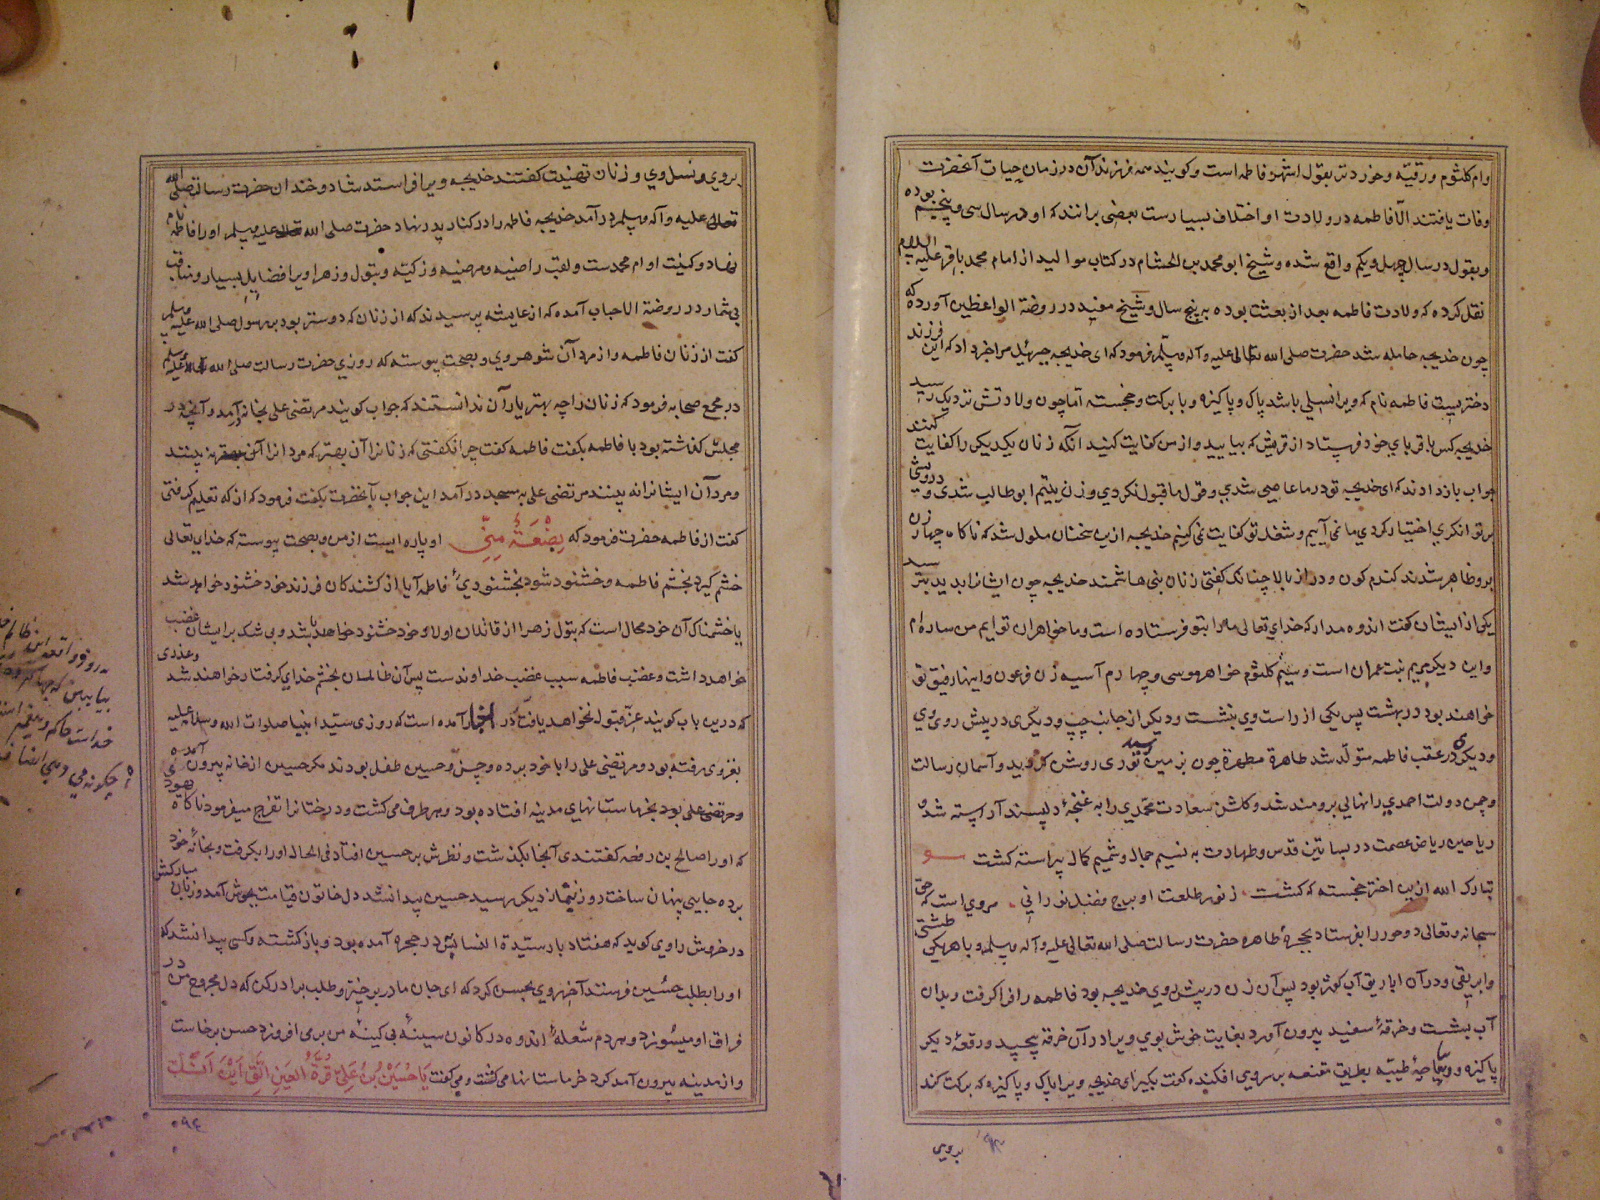 وام کلثوم ورقیّه وخوزد تر بقول اشهر فاطمه است وکویند همه فرزند آن در زمان حیات آنحضرت
وفات یافتند الّا فاطمه در ولادت او اختلاف بسیارست بعضی برانند که او در سال سی و پنجم بوده
وبقول در سال چهل ویکم واقع شده وشیخ ابو محمد بن الخشام در کتاب موالید از امام محمد باقر علیه السلام
نقل کرده که ولادت فاطمه بعد از بعثت بوده به پنج سال وشیخ مفید در روضة الواعظین آورده که
چون خدیجه حامله شد حضرت صلی الله تعالی علیه وآله وسلم فرمود که ای خدیجه جبرئیل مرا خبر داد که این فرزند
دختریست فاطمه نام که ویرا نسلی باشد پاک و پاکیزه و با برکت و خجسته اما چون ولادتش نزدیک رسید
خدیجه کس باقربای خود فرستاد از قریش که بیایید واز من کفایت کنید آنکه زنان یکدیکر را کفایت کنند
جواب باز دادند که ای خدیجه تو در ما عاصی شدی وقول ما قبول نکردی وزن یتیم ابو طالب شدی و درویشی
بر توانکری اختیار کردی ما نمی آییم وشغل تو کفایت نمی کنیم خدیجه ازین سخنان ملول شد که ناکاه چهار زن
برو ظاهر شدند کندم کون ودراز بالا چنانک کفتی زنان بنی هاشمند خدیجه چون ایشانرا بدید بترسید
یکی از ایشان کفت اندوه مدار که خدای تعالی ما را بتو فرستاده است وما خواهران توایم من ساره ام
واین دیکر مریم بنت عمران است و سیّم کلثوم خواهر موسی و چهارم آسیه زن فرعون واینها رفیق تو
خواهند بود در بهشت پس یکی از راست وی بنشست و دیکر از جانب چپ و دیکری در پیش روی وی
ودیکری در عقب فاطمه متولّد شد طاهرة مطهرة چون بزمین رسید نوری روشن کردید وآسمان رسالت
وچمن دولت احمدی را نهالی برومند شد وکلشن سعادت محمّدی را به غنچهٔ دلپسند آراسته شد و
ریاحین ریاض عصمت در بساتین قدس وطهارت به نسیم جمال وشمیم کمال پیراسته کشت
تبارک الله ازین اختر خجسته که کشت زنور طلعت او برج فضل نورانی مرویست که حق
سبحانه وتعالی دو حور را بفرستاد بحجرهٔ طاهره حضرت رسالت صلی الله تعالی علیه وآله وسلم وبا هر یکی طشتی
وابریقی ودر آن اباریق آب کوثر بود پس آن زن در پیش روی خدیجه بود فاطمه را فرا کرفت وبدان
آب بشست وخرقهٔ سفید بیرون آورد بغایت خوش بوی ویرا در آن خرقه پیچید ورقعهٔ دیکر
پاکیزه طیّبه بطریق مقنعه بر سروی افکنده کفت بکیر ای خدیجه ویرا پاک و پاکیزه که برکت کند
بروی
بروی و نسل وی و زنان تهنیت کفتند خدیجه ویرا فراستد شاد وخندان حضرت رسالت صلی الله
تعالی علیه وآله وسلم در آمد خدیجه فاطمه را در کنار پدر نهاد حضرت صلی الله علیه وسلم او را فاطمه نام
نهاد وکنیت او ام محمدست ولقب راضیه ومرضیه وزکیّه وبتول وزهرا ویرا فضایل بسیار ومناقب
بی شمار در روضة الاحباب آمده که از عایشه پرسیدند که از زنان که دوستر بود بر رسول صلی الله علیه وسلم
کفت از زنان فاطمه واز مردان شوهر وی وبصحت پیوسته که روزی حضرت رسالت صلی الله علیه وسلم
در مجمع صحابه فرمود که زنان را چه بهتر یاران ندانستند که جواب کویند مرتضی علی بخانه در آمد وآنچه در
مجلس کذشته بود با فاطمه بکفت فاطمه کفت چرا نکفتی که زنانرا آن بهتر که مردانرا نه بینند
ومردان ایشانرا نه بینند مرتضی علی به مسجد در آمد این جواب بآنحضرت بکفت فرمود که از که تعلیم کرفتی
کفت از فاطمه حضرت فرمود که بِضْعَةٌ مِنِّي او پاره ایست از من وبصحت پیوسته که خدای تعالی
خشم کیرد بخشم فاطمه وخشنود شود بخشنودی فاطمه آیا از کشندکان فرزند خود خشنود خواهد شد
یا خشمناک آن خود محال است که بتول زهرا از قاتلان اولاد خود خشنود خواهد باشد وبی شک برایشان غضب
خواهد داشت وغضب فاطمه سبب غضب خداوندست پس آن ظالمان بخشم خدای کرفتار خواهند شد وعذری
که درین باب کویند عزّ قبول نخواهد یافت در اخبار آمده است که روزی سید انبیا صلوات الله وسلامه علیه
بغزوی رفته بود ومرتضی علی را با خود برده وحسن وحسین طفل بودند مکر حسین از خانه بیرون آمده
ومرتضی علی بود بخرماستانهای مدینه افتاده بود وبهر طرف می کشت ودرختانرا تفرج میفرمود ناکاه یهودی
که او را صالح بن رفعه کفتندی آنجا بکذشت ونظرش بر حسین افتاد فی الحال او را بکرفت وبخانهٔ خود
برده جایی پنهان ساخت روز نماز دیکر رسید حسین پیدا نشد دل خاتون قیامت بجوش آمد وزبان مبارکش
در خروش راوی کوید که هفتاد بار سیدة النسا پیش در حجره آمده بود وباز کشته وکسی پیدا نشد که
او را بطلب حسین فرستد آخر روی بحسن کرد که ای جان مادر برخیز وطلب برادر کن که دل مجروح من در
فراق او میسوزد وهر دم شعلهٔ اندوه در کانون سینهٔ بی کینهٔ من برمی افروزد حسن برخاست
واز مدینه بیرون آمد کرد خرماستانها می کشت ومی کفت يَا حُسَيْنَ بْنَ عَلِيٍّ قُرَّةَ الْعَيْنِ النَّبِيِّ أَيْنَ أَنْتَ
۰۹۴